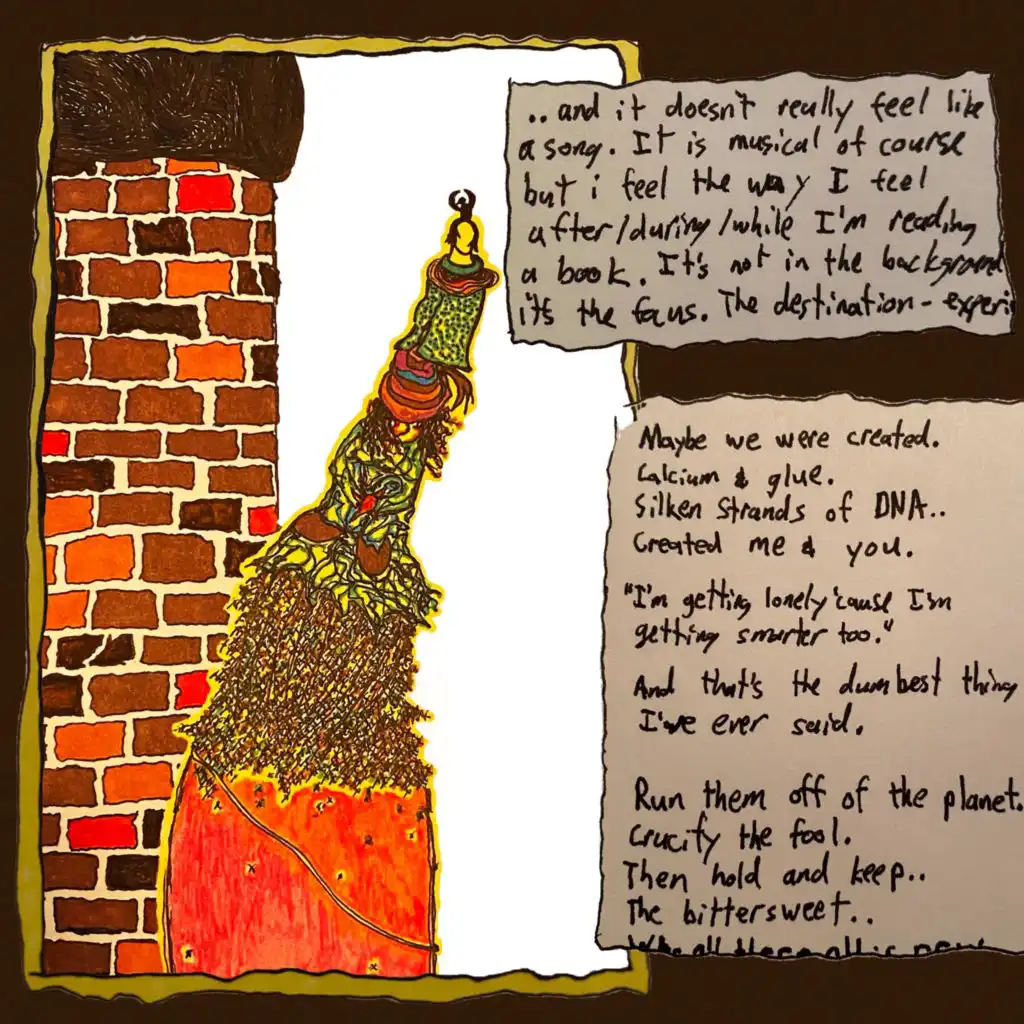 ..and it doesn't really feel like
a song. It is musical of course
but i feel the way I feel
after/during/while I'm reading
a book. It's not in the background
it's the focus. The destination - experi
Maybe we were created.
Calcium & glue.
Silken Strands of DNA..
Created me & you.
"I'm getting lonely 'cause I'm
getting smarter too."
And that's the dumbest thing
I've ever said.
Run them off of the planet.
Crucify the fool.
Then hold and keep..
The bittersweet..